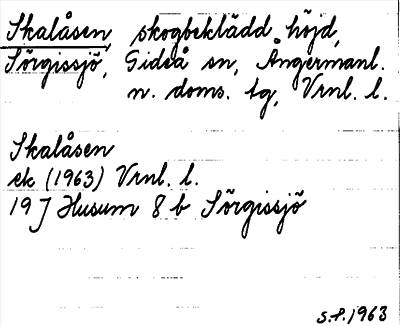 Skalåsen, skogbeklädd höjd,
Sörgissjö, Gideå sn, Ångermanl.
n. doms. tg, Vrnl. l.
Skalåsen
ek (1963) Vrnl. l.
19 J Husum 8 b Sörgissjö
S.P. 1963